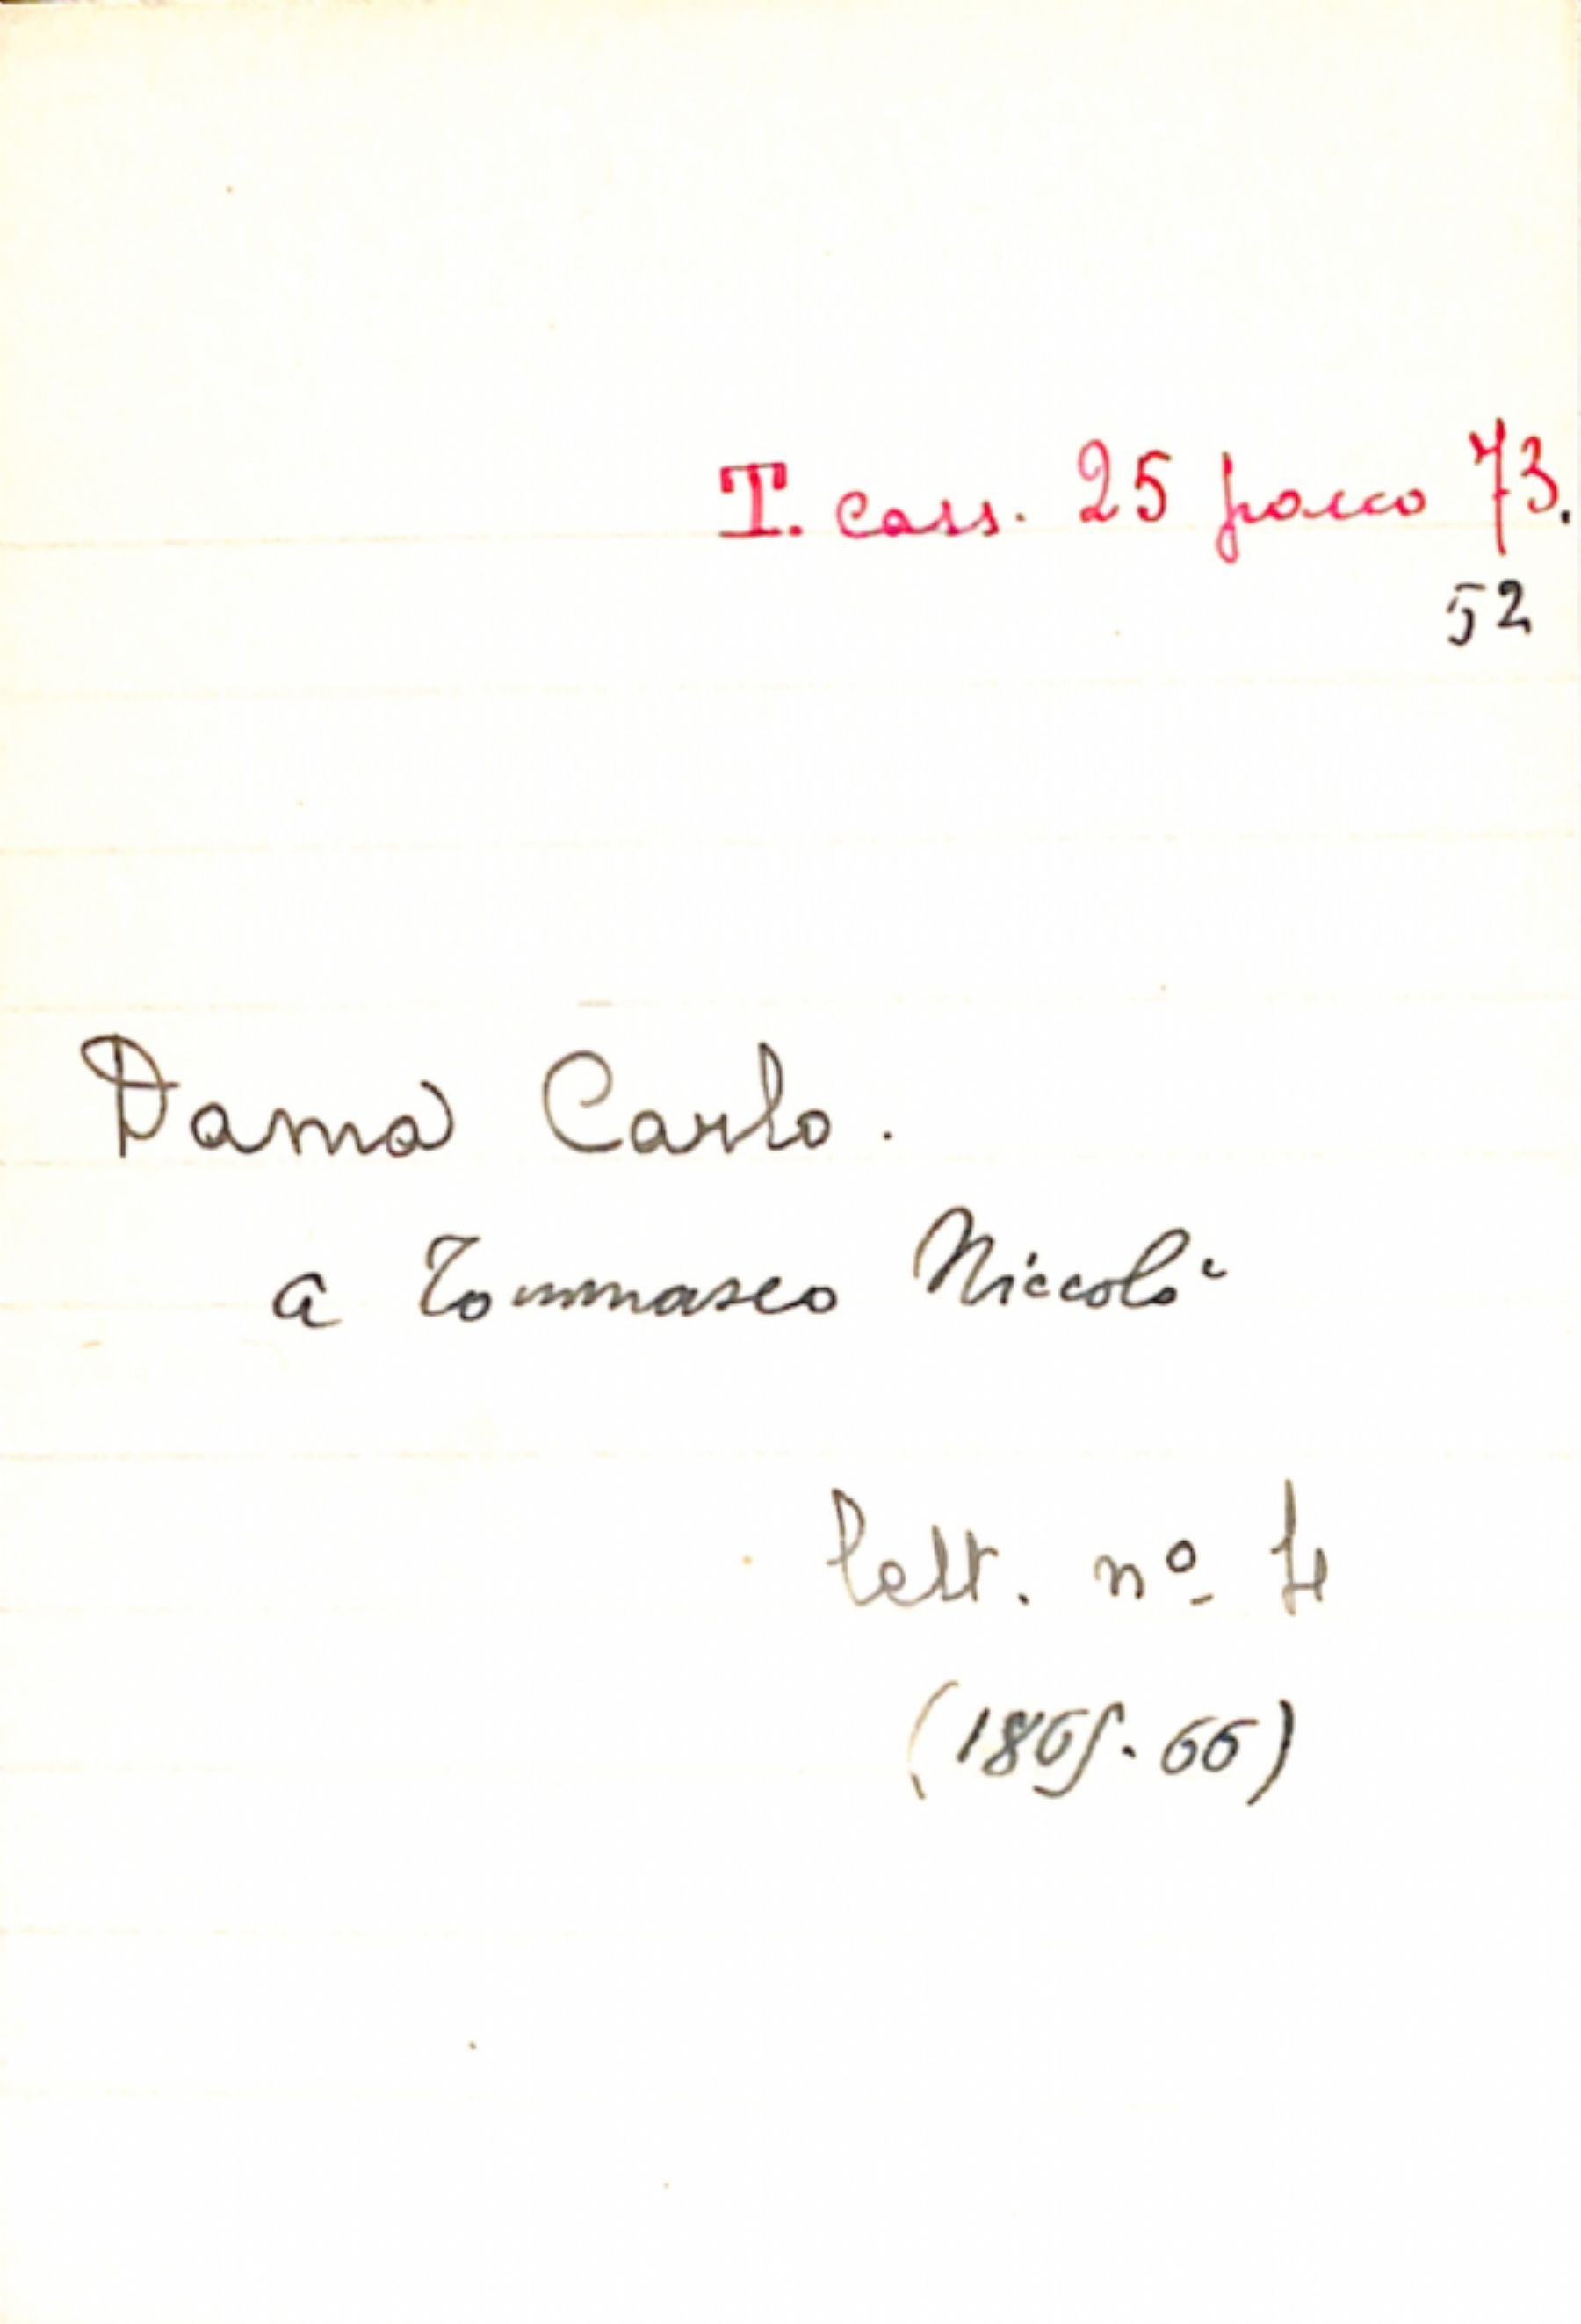 T. cass. 25 pacco 73.
52
Dama Carlo.
a Tommaseo Niccolò
lett. nº 4
(1865-66)